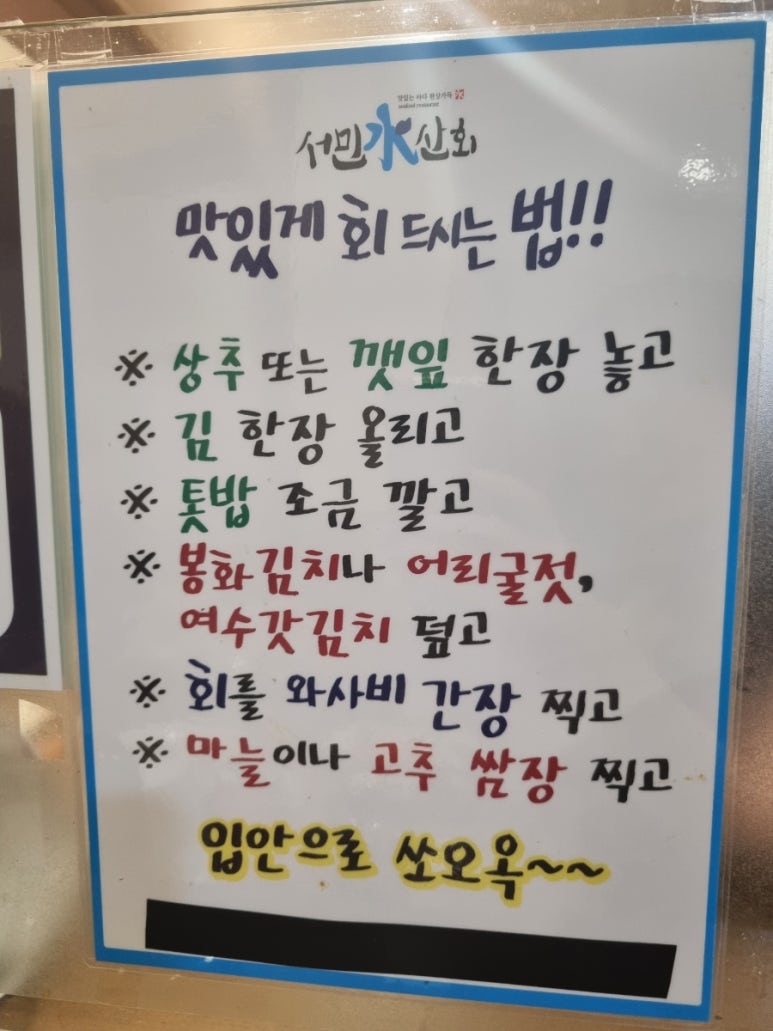 맛있는 바다 한상가득
seafood restaurant
서민水산회
맛있게 회 드시는 법!!
※ 상추 또는 깻잎 한장 놓고
※ 김 한장 올리고
※ 톳밥 조금 깔고
※ 봉화김치나 어리굴젓,
여수갓김치 덮고
※ 회를 와사비 간장 찍고
※ 마늘이나 고추 쌈장 찍고
입안으로 쏘오옥~~